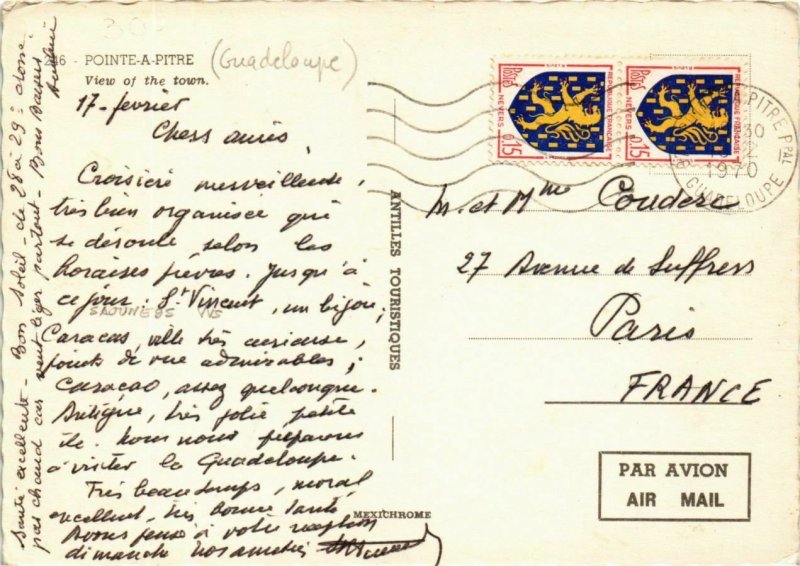 246 - POINTE-A-PITRE
(Guadeloupe)
View of the town.
17 - fevrier
Chers amis,
Croisière merveilleuse,
très bien organisée qui
se déroule selon les
horaires prévus. Jusqu'à
ce jour : St Vincent, un bijou;
SAOUNE95 VVS
Caracas, ville très curieuse,
points de vue admirables;
Curaçao, assez quelconque.
Antigue, très jolie petite
île. Nous nous préparons
à visiter la Guadeloupe.
Très beau temps, moral
excellent, très bonne santé
à votre réception
dimanche nos amitiés
Santé excellente - Bon Soleil - de 28 à 29°
pas chaud car vent léger partout - Bons Baisers
MEXICHROME
ANTILLES TOURISTIQUES
Postes
REPUBLIQUE FRANÇAISE
NEVERS
0,15
Postes
REPUBLIQUE FRANÇAISE
NEVERS
0,15
PITRE PPAL
30
1970
GUADELOUPE
M. et Mme Couderc
27 Avenue de Suffren
Paris
FRANCE
PAR AVION
AIR MAIL